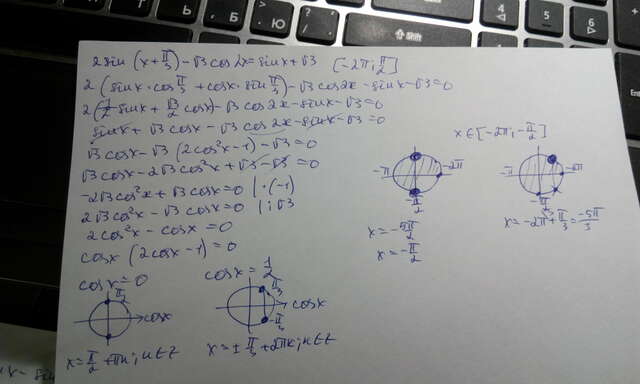 2sin(x+π/3)-√3cos2x=sinx+√3 [-2π; π/2]
2(sinx·cosπ/3+cosx·sinπ/3)-√3cos2x-sinx-√3=0
2(1/2sinx+√3/2cosx)-√3cos2x-sinx-√3=0
sinx+√3cosx-√3cos2x-sinx-√3=0
√3cosx-√3(2cos²x-1)-√3=0
√3cosx-2√3cos²x+√3-√3=0
-2√3cos²x+√3cosx=0 |·(-1)
2√3cos²x-√3cosx=0 |:√3
2cos²x-cosx=0
cosx(2cosx-1)=0
cosx=0
π/2
cosx
x=π/2+πn; n∈Z
cosx=1/2
π/3
cosx
-π/3
x=±π/3+2πk; k∈Z
x∈[-2π; -π/2]
-π
-2π
-π/2
x=-5π/2
x=-π/2
-π
-2π
-π/2
x=-2π+π/3=-5π/3
Б
Ю
&
4
5
6
Shift